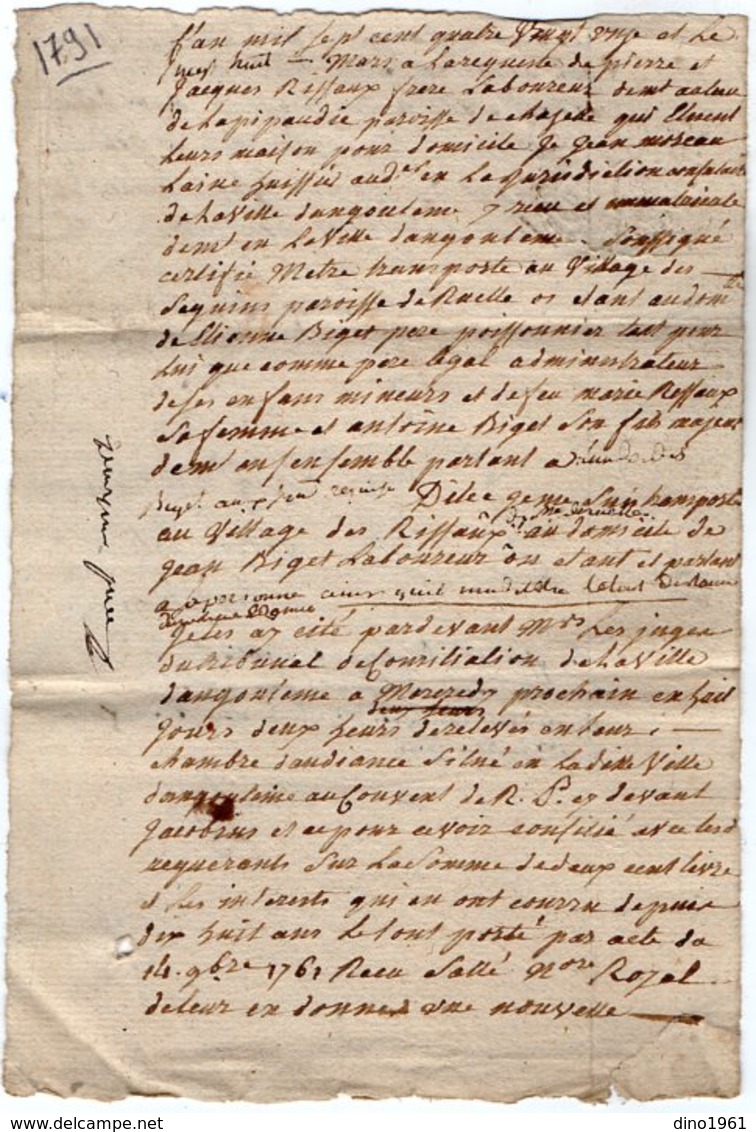 1791
L'an mil sept cent quatre vingt onze et le
huit Mars a La requeste de pierre et
Jacques Riffaux frere Laboureur demt au lieu
de Lapipaudie paroisse de qui Elisent
Leurs maison pour domicile Je Jean moreau
Laine huissier aud.er en La Jurisdiction consulaire
de La Ville dangouleme y recu et immatricule
demt en La Ville dangouleme Soussigné
certifie Metre transporte au Village des
Seguins paroisse de Ruelle os etant au dom.lle
de Etienne Biget pere poissonnier tant pour
Lui que comme pere legal administrateur
de ses enfans mineurs et de feu marie Riffaux
Sa femme et antoine Biget Son fils majeur
demt ensemble parlant a
Biget aux requise Dilec geme Suis transporte
au Village des Riffaux au domicile de
Jean Biget Laboureur ôu etant et parlant
a sa personne ainsi quil ma dit etre
Je les ay cité pardevant Mrs Les juges
du tribunal de Conciliation de La Ville
dangouleme a Mercredy prochain en huit
deux heurs
Jours deux heurs de relevés en leur
chambre daudiance Situé en Laditte Ville
dangouleme au Couvent de R. Ps. cy devant
Jacobins et ce pour ce voir consilié avec lesd
requerants Sur La Somme de deux cent livre
et Les interests qui en ont courru depuis
dix huit ans Le tout porté par acte du
14. 9bre 1761 Recu Sallé Nore Royal
de leur en donner une nouvelle